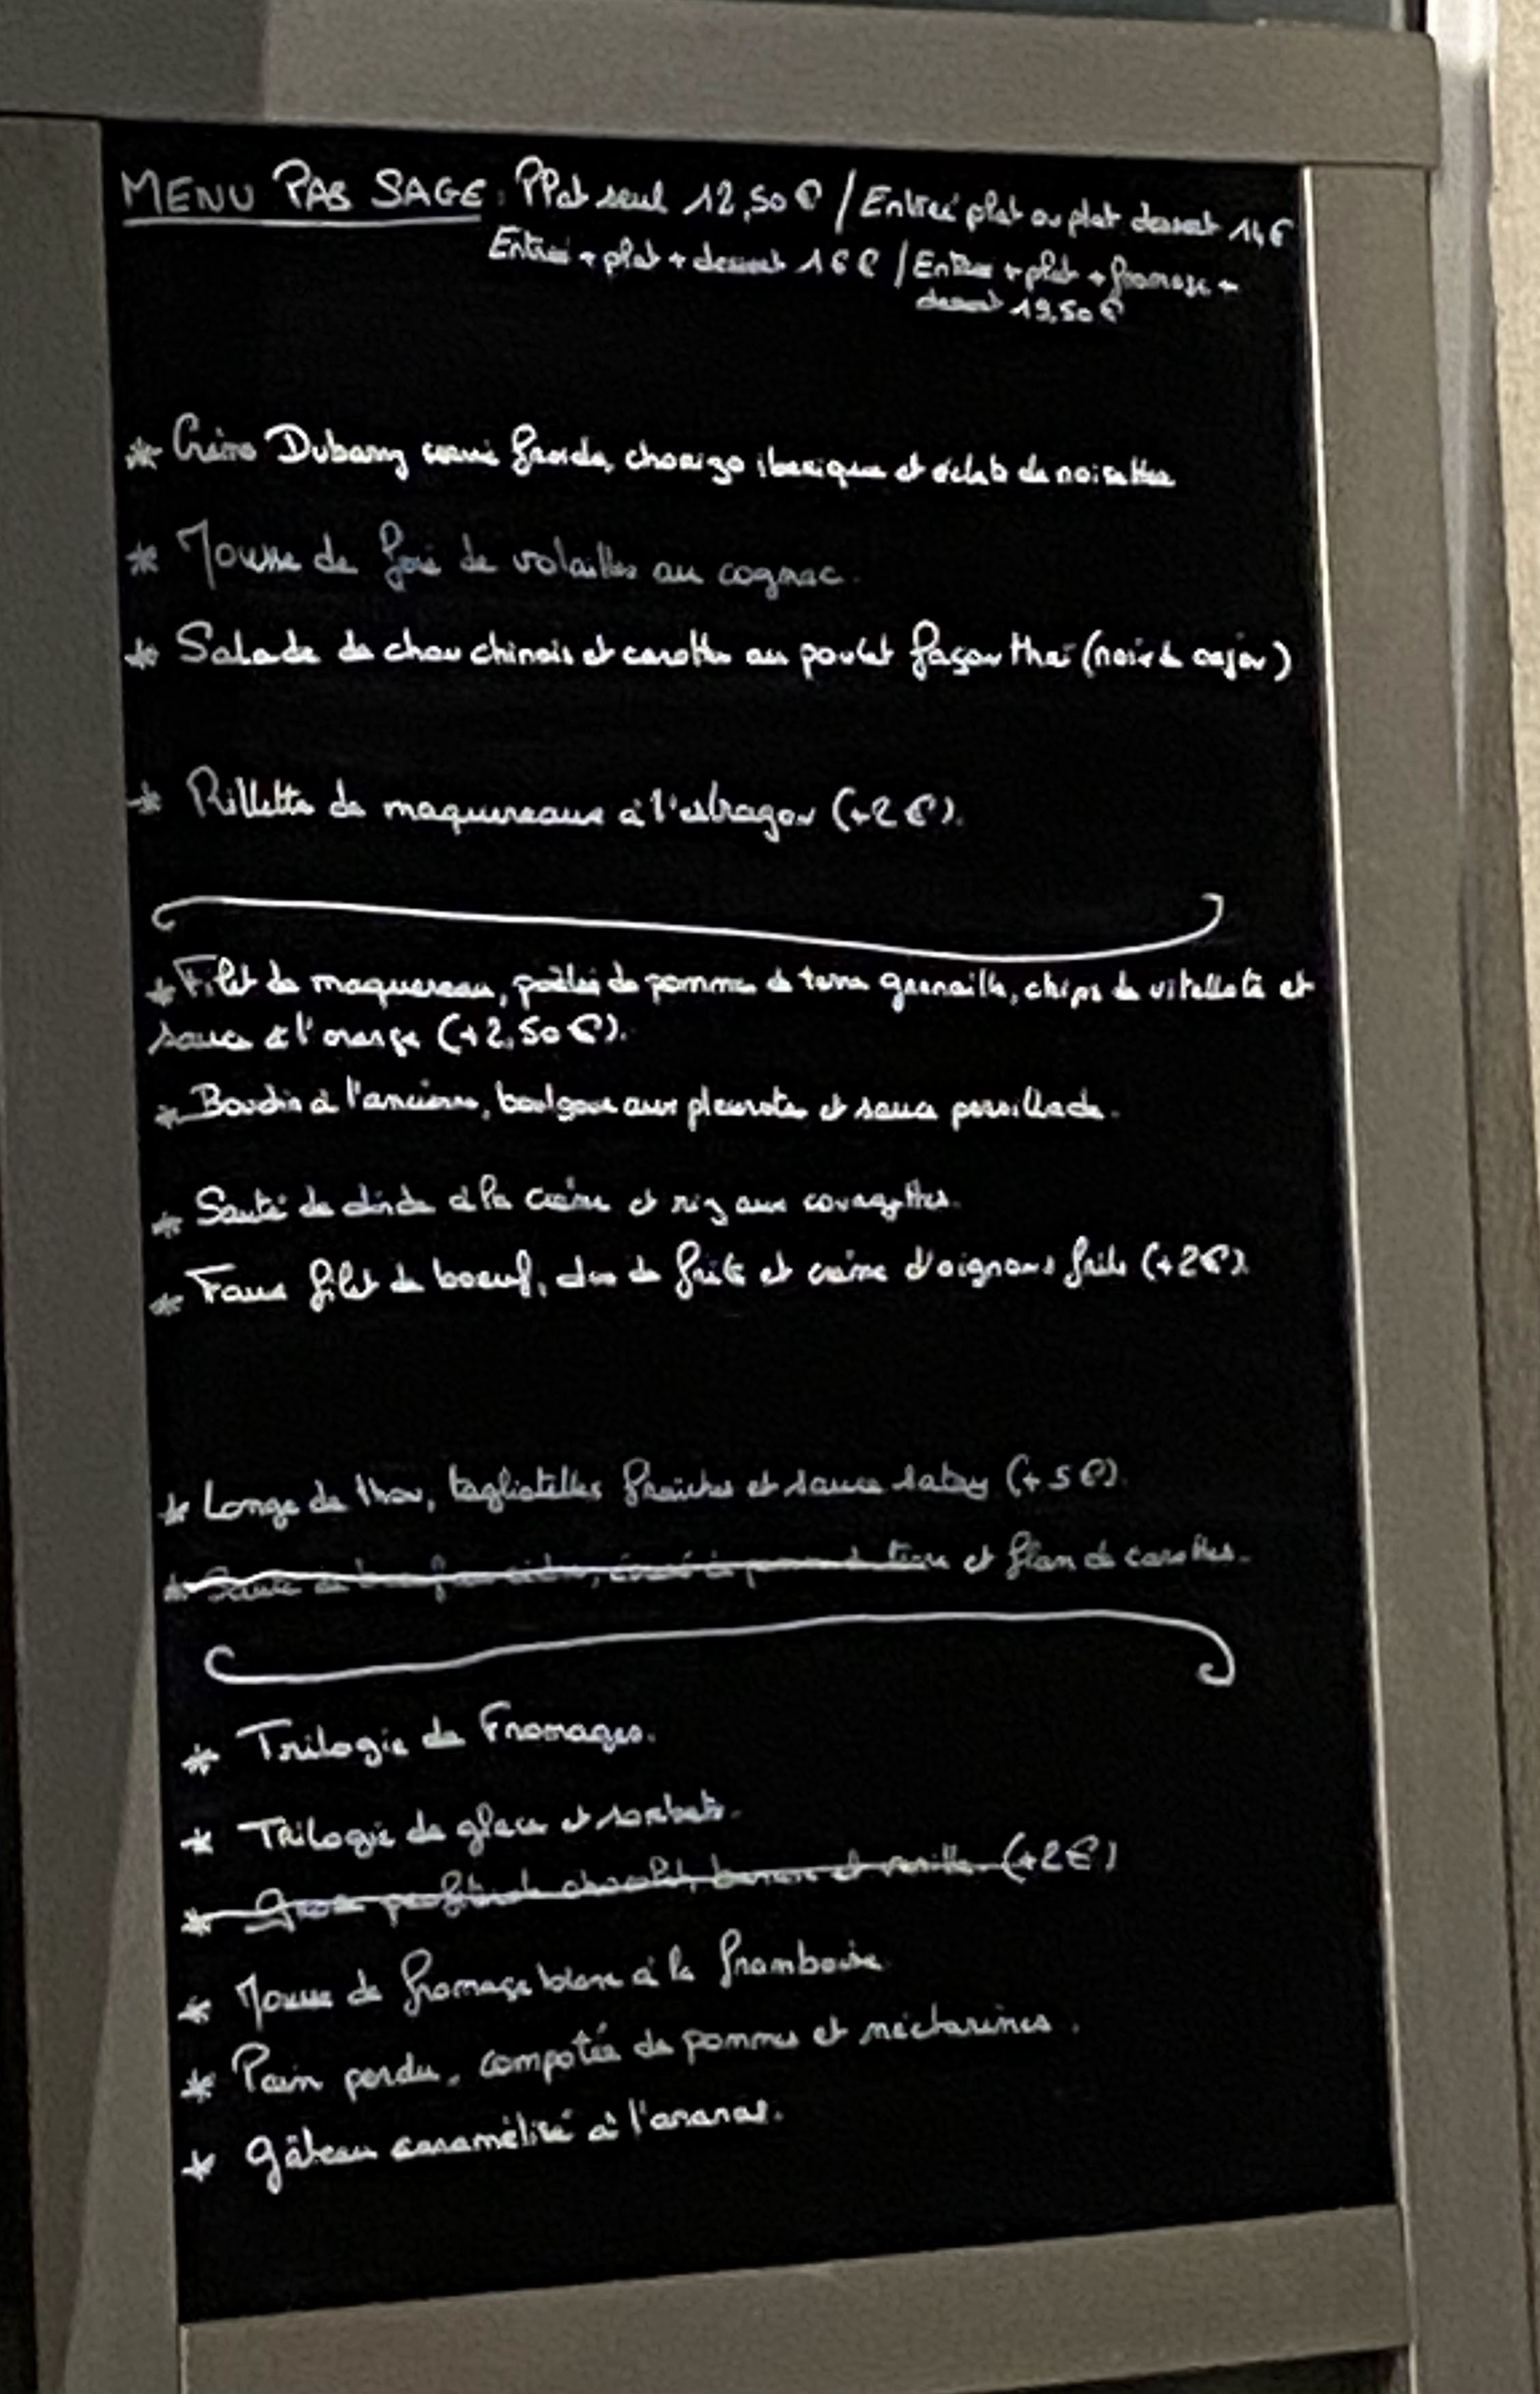 MENU PAS SAGE : Plat seul 12,50€ / Entrée plat ou plat dessert 14€
Entrée + plat + dessert 16€ / Entrée + plat + fromage +
dessert 19,50€
* Crème Dubarry servie froide, chorizo iberique et éclats de noisettes
* Mousse de foie de volailles au cognac.
* Salade de chou chinois et carottes au poulet façon thaï (noix de cajou)
* Rillette de maquereaux à l'estragon (+2€).
* Filet de maquereau, poêlée de pommes de terre grenaille, chips de vitellote et
sauce à l'orange (+2,50€).
* Boudin à l'ancienne, boulgour aux pleurotes et sauce persillade.
* Sauté de dinde à la crème et riz aux courgettes.
* Faux filet de boeuf, duo de frites et crème d'oignons frits (+2€).
* Longe de thon, tagliatelles fraiches et sauce satay (+5€).
* Sauté de terre et flan de carottes.
* Trilogie de Fromages.
* Trilogie de glaces et sorbets.
* chocolat, banane et vanille (+2€)
* Mousse de fromage blanc à la framboise
* Pain perdu, compotée de pommes et nectarines.
* Gâteau caramélisé à l'ananas.